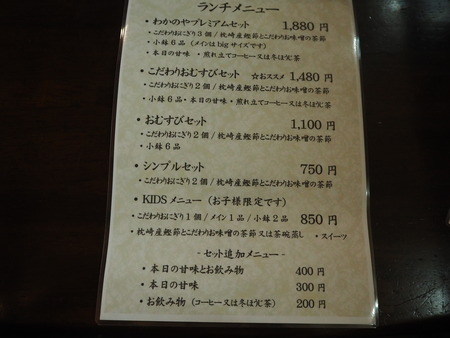 ランチメニュー
・わかのやプレミアムセット 1,880 円
・こだわりおにぎり3個/枕崎産鰹節とこだわりお味噌の茶節
・小鉢6品(メインは big サイズです)
・本日の甘味 ・煎れ立てコーヒー又は冬ほうじ茶
・こだわりおむすびセット ☆おススメ 1,480 円
・こだわりおにぎり2個/枕崎産鰹節とこだわりお味噌の茶節
・小鉢6品・本日の甘味・煎れ立てコーヒー又は冬ほうじ茶
・おむすびセット 1,100 円
・こだわりおにぎり2個/枕崎産鰹節とこだわりお味噌の茶節
・小鉢6品
・シンプルセット 750 円
・こだわりおにぎり2個/枕崎産鰹節とこだわりお味噌の茶節
・KIDSメニュー(お子様限定です)
・こだわりおにぎり1個/メイン1品/小鉢2品 850 円
・枕崎産鰹節とこだわりお味噌の茶節又は茶碗蒸し ・スイーツ
-セット追加メニュー-
・本日の甘味とお飲み物 400 円
・本日の甘味 300 円
・お飲み物(コーヒー又は冬ほうじ茶) 200 円